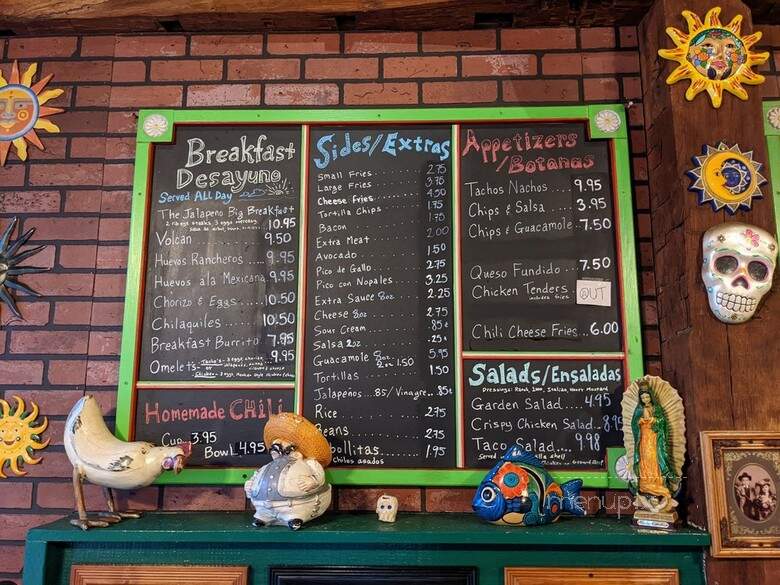 Breakfast
Desayuno
Served All Day
The Jalapeño Big Breakfast
10.95
Volcán 9.50
Huevos Rancheros 9.95
Huevos a la Mexicana 9.95
Chorizo & Eggs 10.50
Chilaquiles 10.50
Breakfast Burrito 7.95
Omelets 9.95
Homemade CHili
Cup 3.95
Bowl 4.95
Sides/Extras
Small Fries 2.75
Large Fries 3.75
Cheese fries 4.50
Tortilla Chips 1.75
Bacon 1.75
Extra Meat 2.00
Avocado 1.50
Pico de Gallo 2.75
Pico con Nopales 3.25
Extra Sauce 8oz 2.25
Cheese 8oz 2.75
Sour Cream .85¢
Salsa 2oz .25¢
Guacamole 8oz 5.95
2oz 1.50
Tortillas 1.50
Jalapeños .85/Vinagre .85¢
Rice 2.75
Beans 2.75
bollitas 1.95
chiles asados
Appetizers
/Botanas
Tachos Nachos 9.95
Chips & Salsa 3.95
Chips & Guacamole 7.50
Queso Fundido 7.50
Chicken Tenders OUT
includes fries
Chili Cheese Fries 6.00
Salads/Ensaladas
Garden Salad 4.95
Crispy Chicken Salad 8.95
Taco Salad 9.98
menup